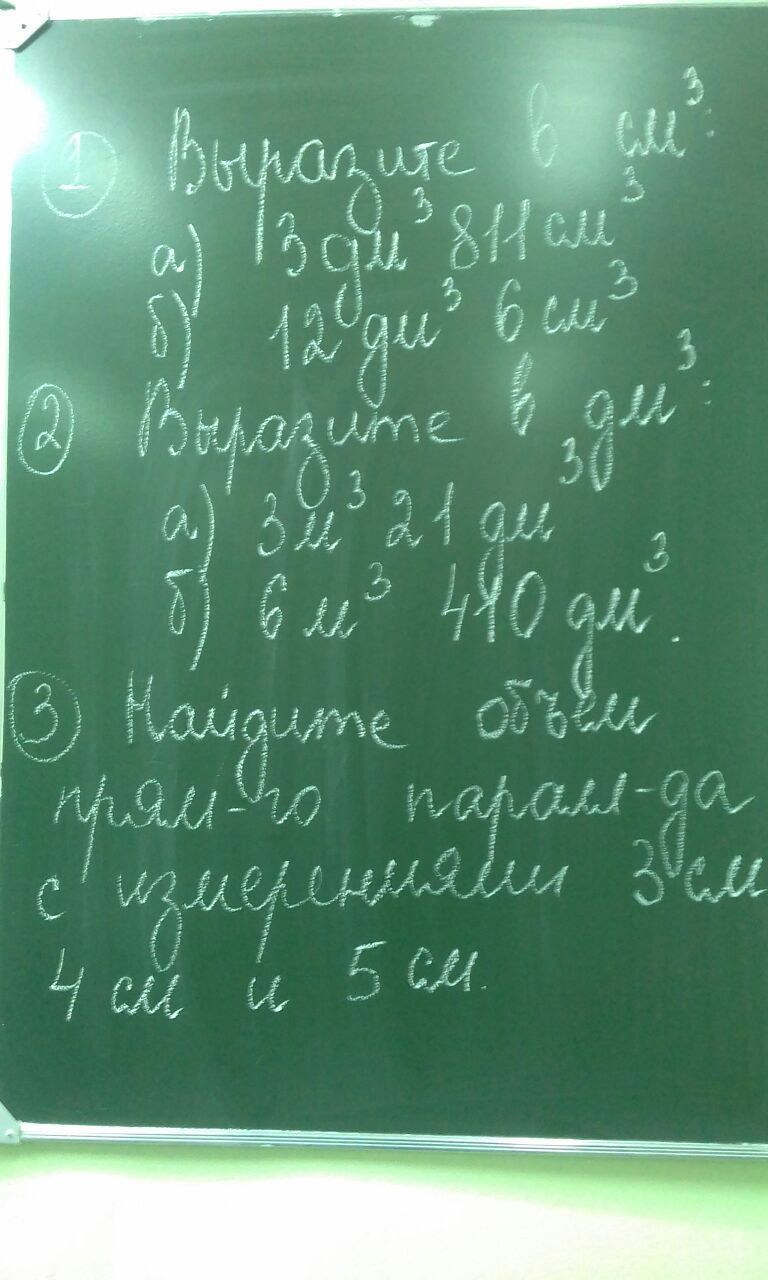 1 Выразите в см³:
а) 3 дм³ 811 см³
б) 12 дм³ 6 см³
2 Выразите в дм³:
а) 3 м³ 21 дм³
б) 6 м³ 410 дм³.
3 Найдите объём
прям-го парал-да
с измерениями 3 см
4 см и 5 см.